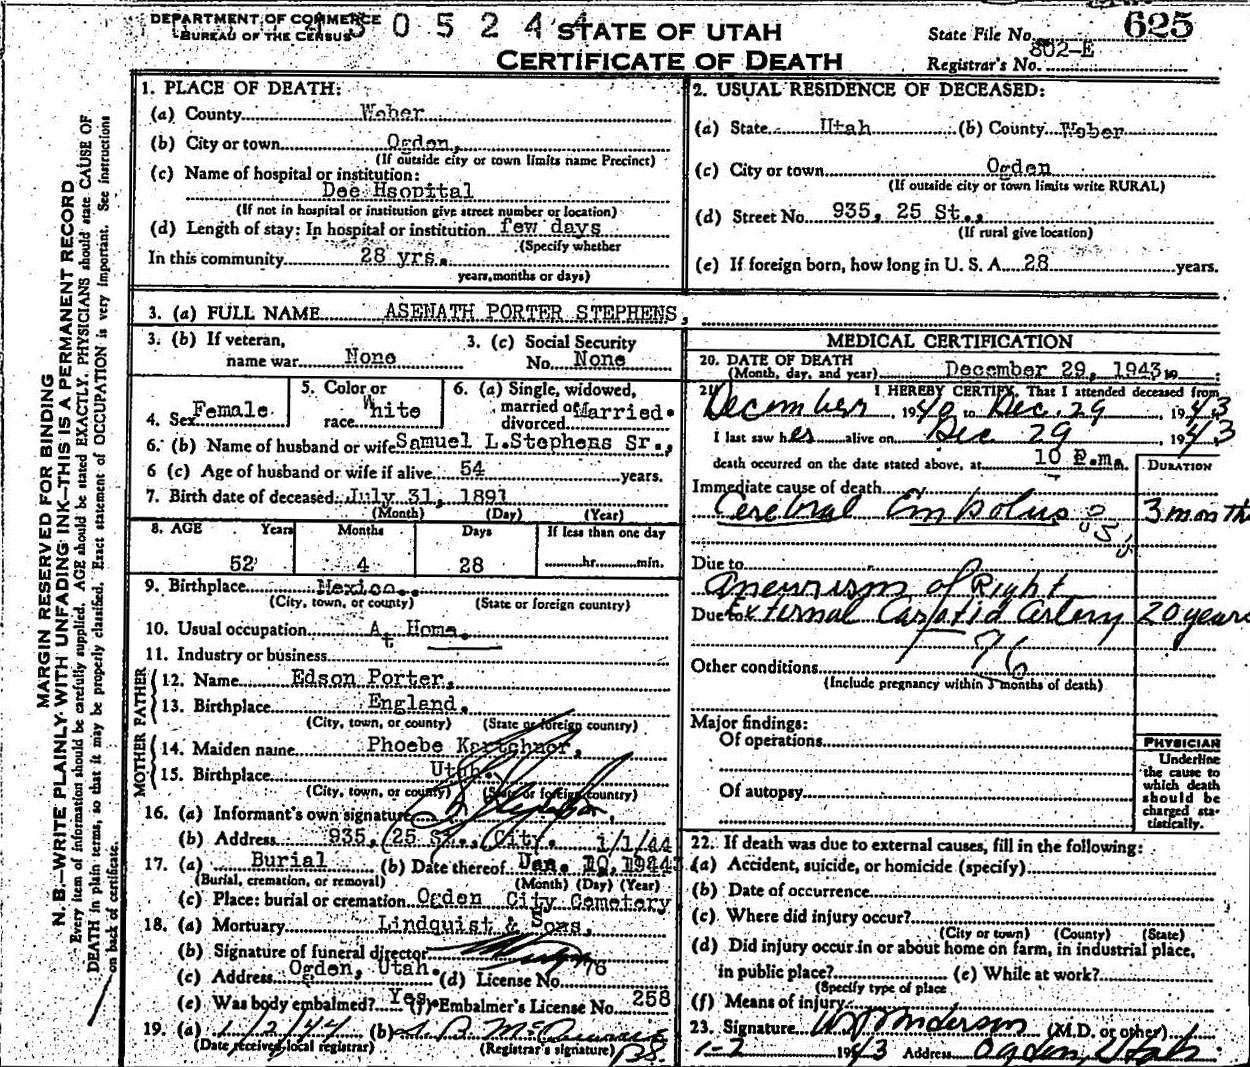 DEPARTMENT OF COMMERCE
BUREAU OF THE CENSUS
0 5 2 4 4
STATE OF UTAH
CERTIFICATE OF DEATH
State File No. 625
Registrar's No. 802-E
MARGIN RESERVED FOR BINDING
N. B.—WRITE PLAINLY WITH UNFADING INK—THIS IS A PERMANENT RECORD
Every item of information should be carefully supplied. AGE should be stated EXACTLY. PHYSICIANS should state CAUSE OF
DEATH in plain terms, so that it may be properly classified. Exact statement of OCCUPATION is very important. See instructions
on back of certificate.
1. PLACE OF DEATH:
(a) County Weber
(b) City or town Ogden,
(If outside city or town limits name Precinct)
(c) Name of hospital or institution:
Dee Hsopital
(If not in hospital or institution give street number or location)
(d) Length of stay: In hospital or institution few days
(Specify whether
In this community 28 yrs.
years, months or days)
2. USUAL RESIDENCE OF DECEASED:
(a) State Utah (b) County Weber
(c) City or town Ogden
(If outside city or town limits write RURAL)
(d) Street No. 935, 25 St.,
(If rural give location)
(e) If foreign born, how long in U. S. A. 28 years.
3. (a) FULL NAME ASENATH PORTER STEPHENS,
3. (b) If veteran, name war None
3. (c) Social Security No. None
4. Sex Female
5. Color or race White
6. (a) Single, widowed, married or divorced Married.
6. (b) Name of husband or wife Samuel L. Stephens Sr.,
6 (c) Age of husband or wife if alive 54 years.
7. Birth date of deceased July 31, 1891
(Month) (Day) (Year)
8. AGE Years Months Days If less than one day
52 4 28 hr. min.
9. Birthplace Mexico.
(City, town, or county) (State or foreign country)
10. Usual occupation At Home.
11. Industry or business
FATHER
12. Name Edson Porter,
13. Birthplace England.
(City, town, or county) (State or foreign country)
MOTHER
14. Maiden name Phoebe Kartchner,
15. Birthplace Utah.
(City, town, or county) (State or foreign country)
16. (a) Informant's own signature
(b) Address 935, 25 St., City. 1/1/44
17. (a) Burial (b) Date thereof 1944
(Burial, cremation, or removal) (Month) (Day) (Year)
(c) Place: burial or cremation Ogden City Cemetery
18. (a) Mortuary Lindquist & Sons,
(b) Signature of funeral director
(c) Address Ogden, Utah. (d) License No. 76
(e) Was body embalmed? Yes. (f) Embalmer's License No. 258
19. (a) 1/2/44 (b)
(Date received local registrar) (Registrar's signature)
MEDICAL CERTIFICATION
20. DATE OF DEATH
(Month, day, and year) December 29, 1943 19
21. I HEREBY CERTIFY, That I attended deceased from
December, 1940 to Dec. 29, 1943
I last saw her alive on Dec 29, 1943
death occurred on the date stated above, at 10 P.m.
DURATION
Immediate cause of death
Cerebral Embolus 3 months
Due to
Aneurism of Right
Due to External Carotid Artery 20 years
96
Other conditions
(Include pregnancy within 3 months of death)
Major findings:
Of operations
Of autopsy
PHYSICIAN
Underline
the cause to
which death
should be
charged sta-
tistically.
22. If death was due to external causes, fill in the following:
(a) Accident, suicide, or homicide (specify)
(b) Date of occurrence
(c) Where did injury occur?
(City or town) (County) (State)
(d) Did injury occur in or about home on farm, in industrial place,
in public place? (e) While at work?
(Specify type of place
(f) Means of injury
23. Signature Anderson (M.D. or other)
1-2 1943 Address Ogden, Utah